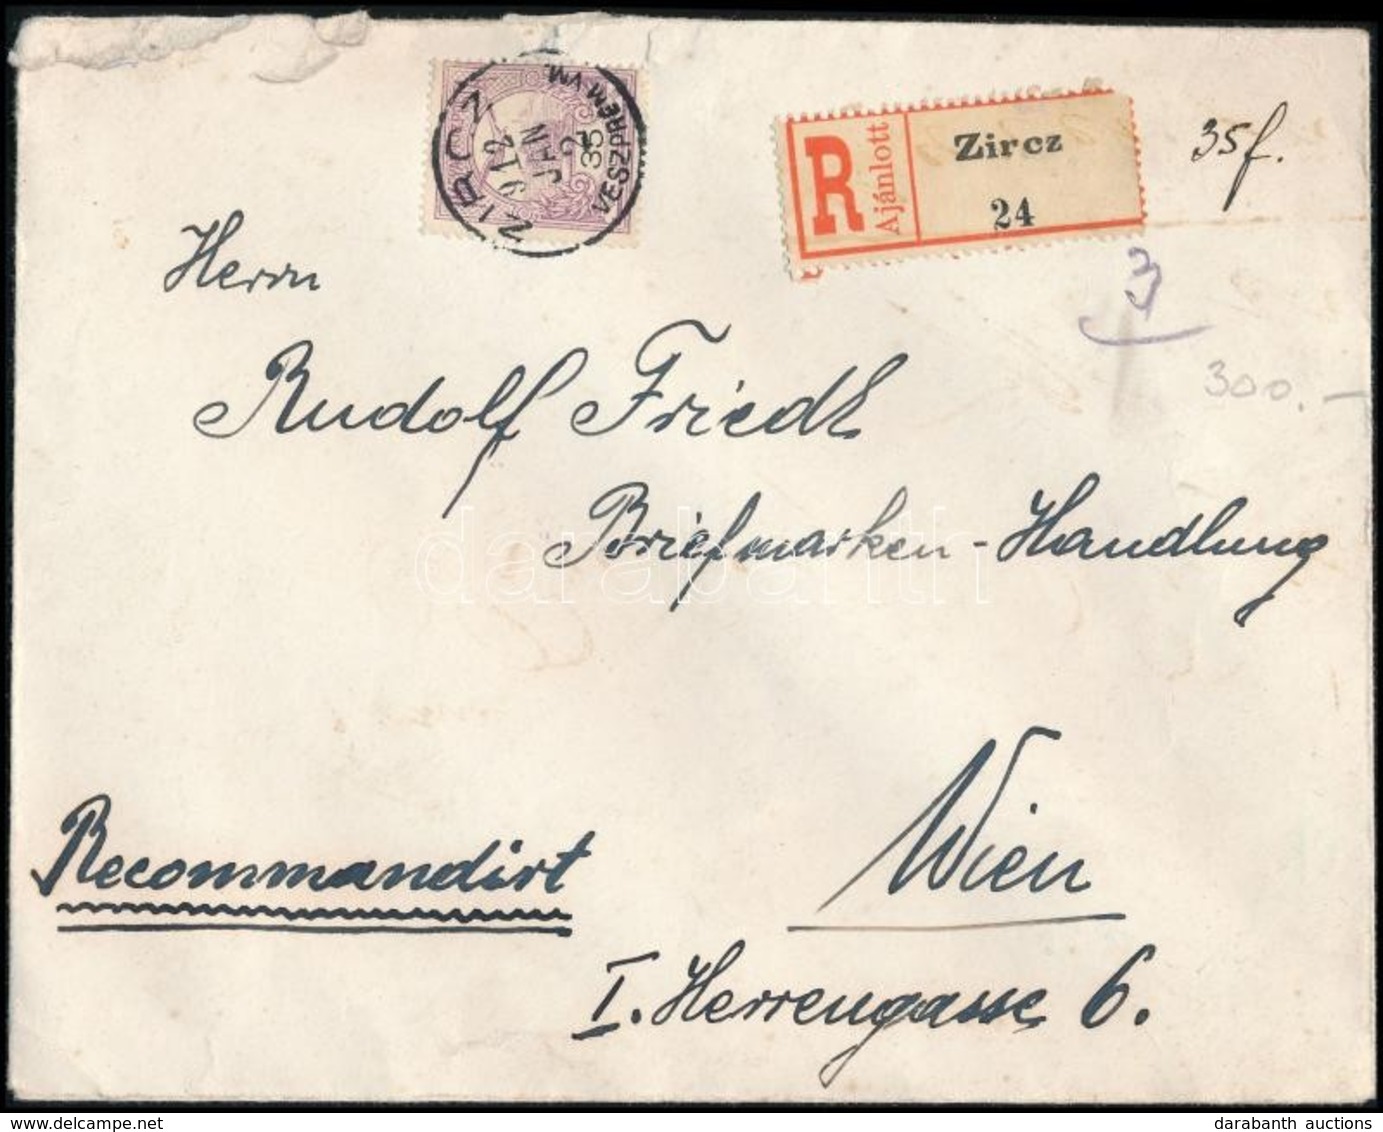 ZIRCZ
912
JAN
2
35
VESZPRÉM VM.
R
Ajánlott
Zircz
24
35f.
3
300.-
Herrn
Rudolf Friedl
Briefmarken-Handlung
darabanth
Recommandirt
Wien
I. Herrengasse 6.
darabanth auctions